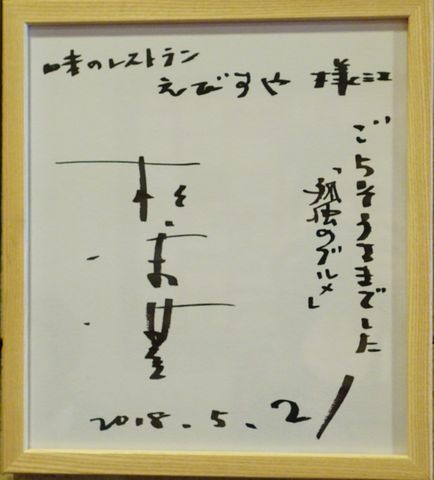 味のレストラン
えびすや 様江
ごちそうさまでした
「孤独のグルメ」
2018.5.21